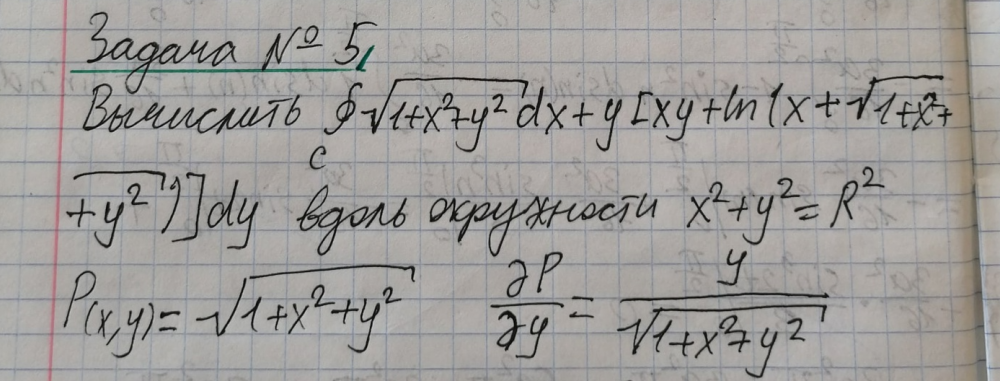 Задача № 5
Вычислить ∮_C √(1+x²+y²) dx + y [xy + ln(x + √(1+x²+
+y²))] dy вдоль окружности x²+y²=R²
P(x,y) = √(1+x²+y²)   ∂P/∂y = y/√(1+x²+y²)